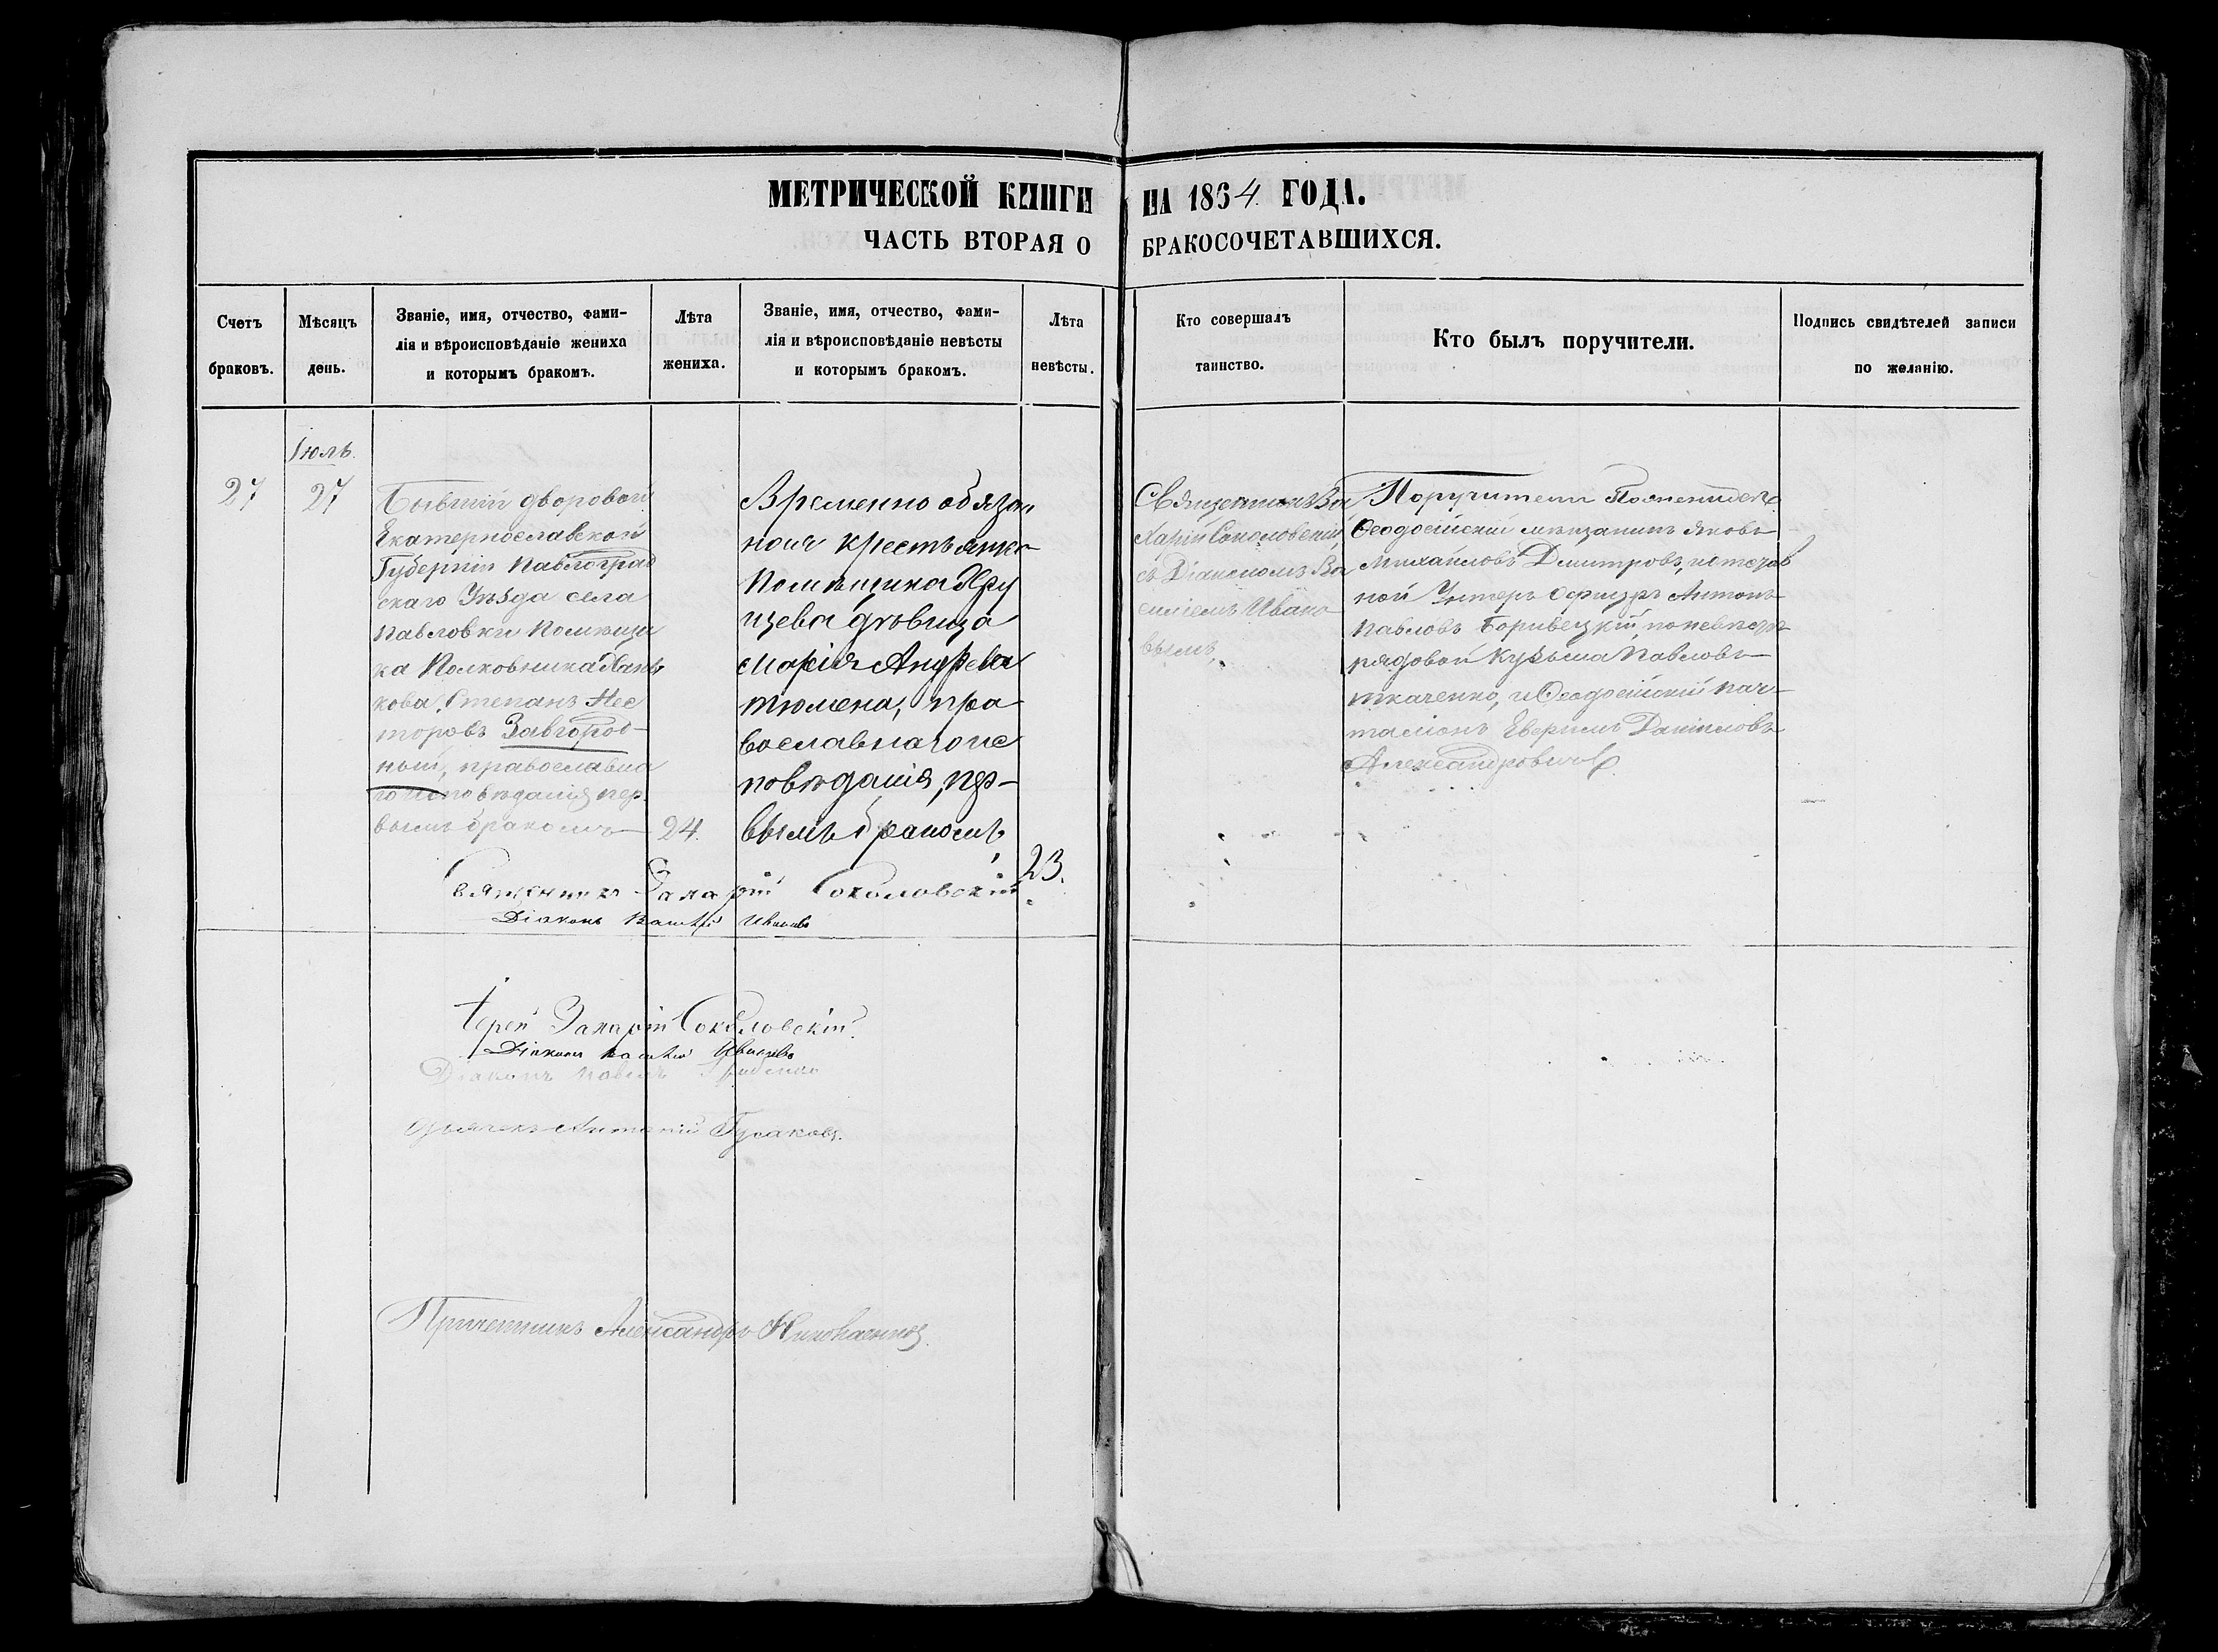 МЕТРИЧЕСКОЙ КНИГИ НА 1864 ГОДА.
ЧАСТЬ ВТОРАЯ О БРАКОСОЧЕТАВШИХСЯ.
Счетъ браковъ.
Мѣсяцъ день.
Званіе, имя, отчество, фами-
лія и вѣроисповѣданіе жениха
и которымъ бракомъ.
Лѣта жениха.
Званіе, имя, отчество, фами-
лія и вѣроисповѣданіе невѣсты
и которымъ бракомъ.
Лѣта невѣсты.
Кто совершалъ
таинство.
Кто былъ поручители.
Подпись свидѣтелей записи
по желанію.
27
Іюль.
27
Бывшій дворовой
Екатеринославской
Губерніи Павлоград
скаго Уѣзда села
Павловки Помѣщи
ка Полковника
кова, Степанъ Нес
торовъ Завгород-
ный, православна
го исповѣданія, пер
вымъ бракомъ
24.
Временно обязан
ная крестьянка
Помѣщика
цева дѣвица
Марія Андрева
тюмена, пра
вославнаго ис
повѣданія, пер-
вымъ бракомъ,
23.
Священникъ За
харій Соколовскій
съ Діакономъ Ва
силіемъ Ивано
вымъ,
Поручители По женихѣ
Ѳеодосійскій мѣщанинъ Яковъ
Михайловъ Дмитровъ, и отстав
ной Унтеръ Офицеръ Антонъ
Павловъ по невѣстѣ
рядовой Кузьма Павловъ
ткаченко, и Ѳеодосійскій
Даниловъ
Александровичъ
Священникъ Захарій Соколовскій
Діаконъ Василій Ивановъ
Іерей Захарій Соколовскій.
Діаконъ Василій Ивановъ
Діаконъ Павелъ
Дьячекъ Антоній Гусаковъ.
Причетникъ Александръ